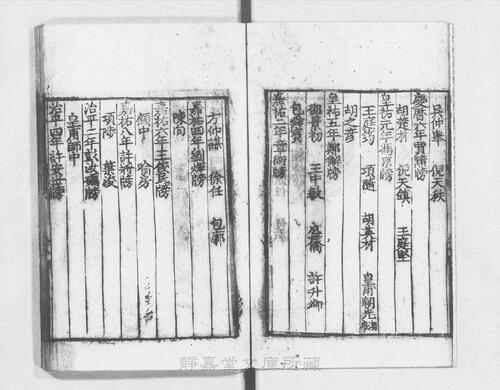 吕仲舉 倪天秩
慶曆六年賈黯榜
胡舜舉 倪天鎮 王庭堅
皇祐元年馮京榜
王庭筠 項隨 胡英材 皇甫朝光
胡之彦
皇祐五年鄭獬榜
邵景初 王中敏 盛僑 許升卿
嘉祐二年章衡榜
方仲謀 徐任 包廓
嘉祐四年劉煇榜
陳向
嘉祐六年王俊民榜
顧中 喻房
嘉祐八年許將榜
項陟 葉波
治平二年彭汝礪榜
皇甫師中
治平四年許安世榜
靜嘉堂文庫所藏